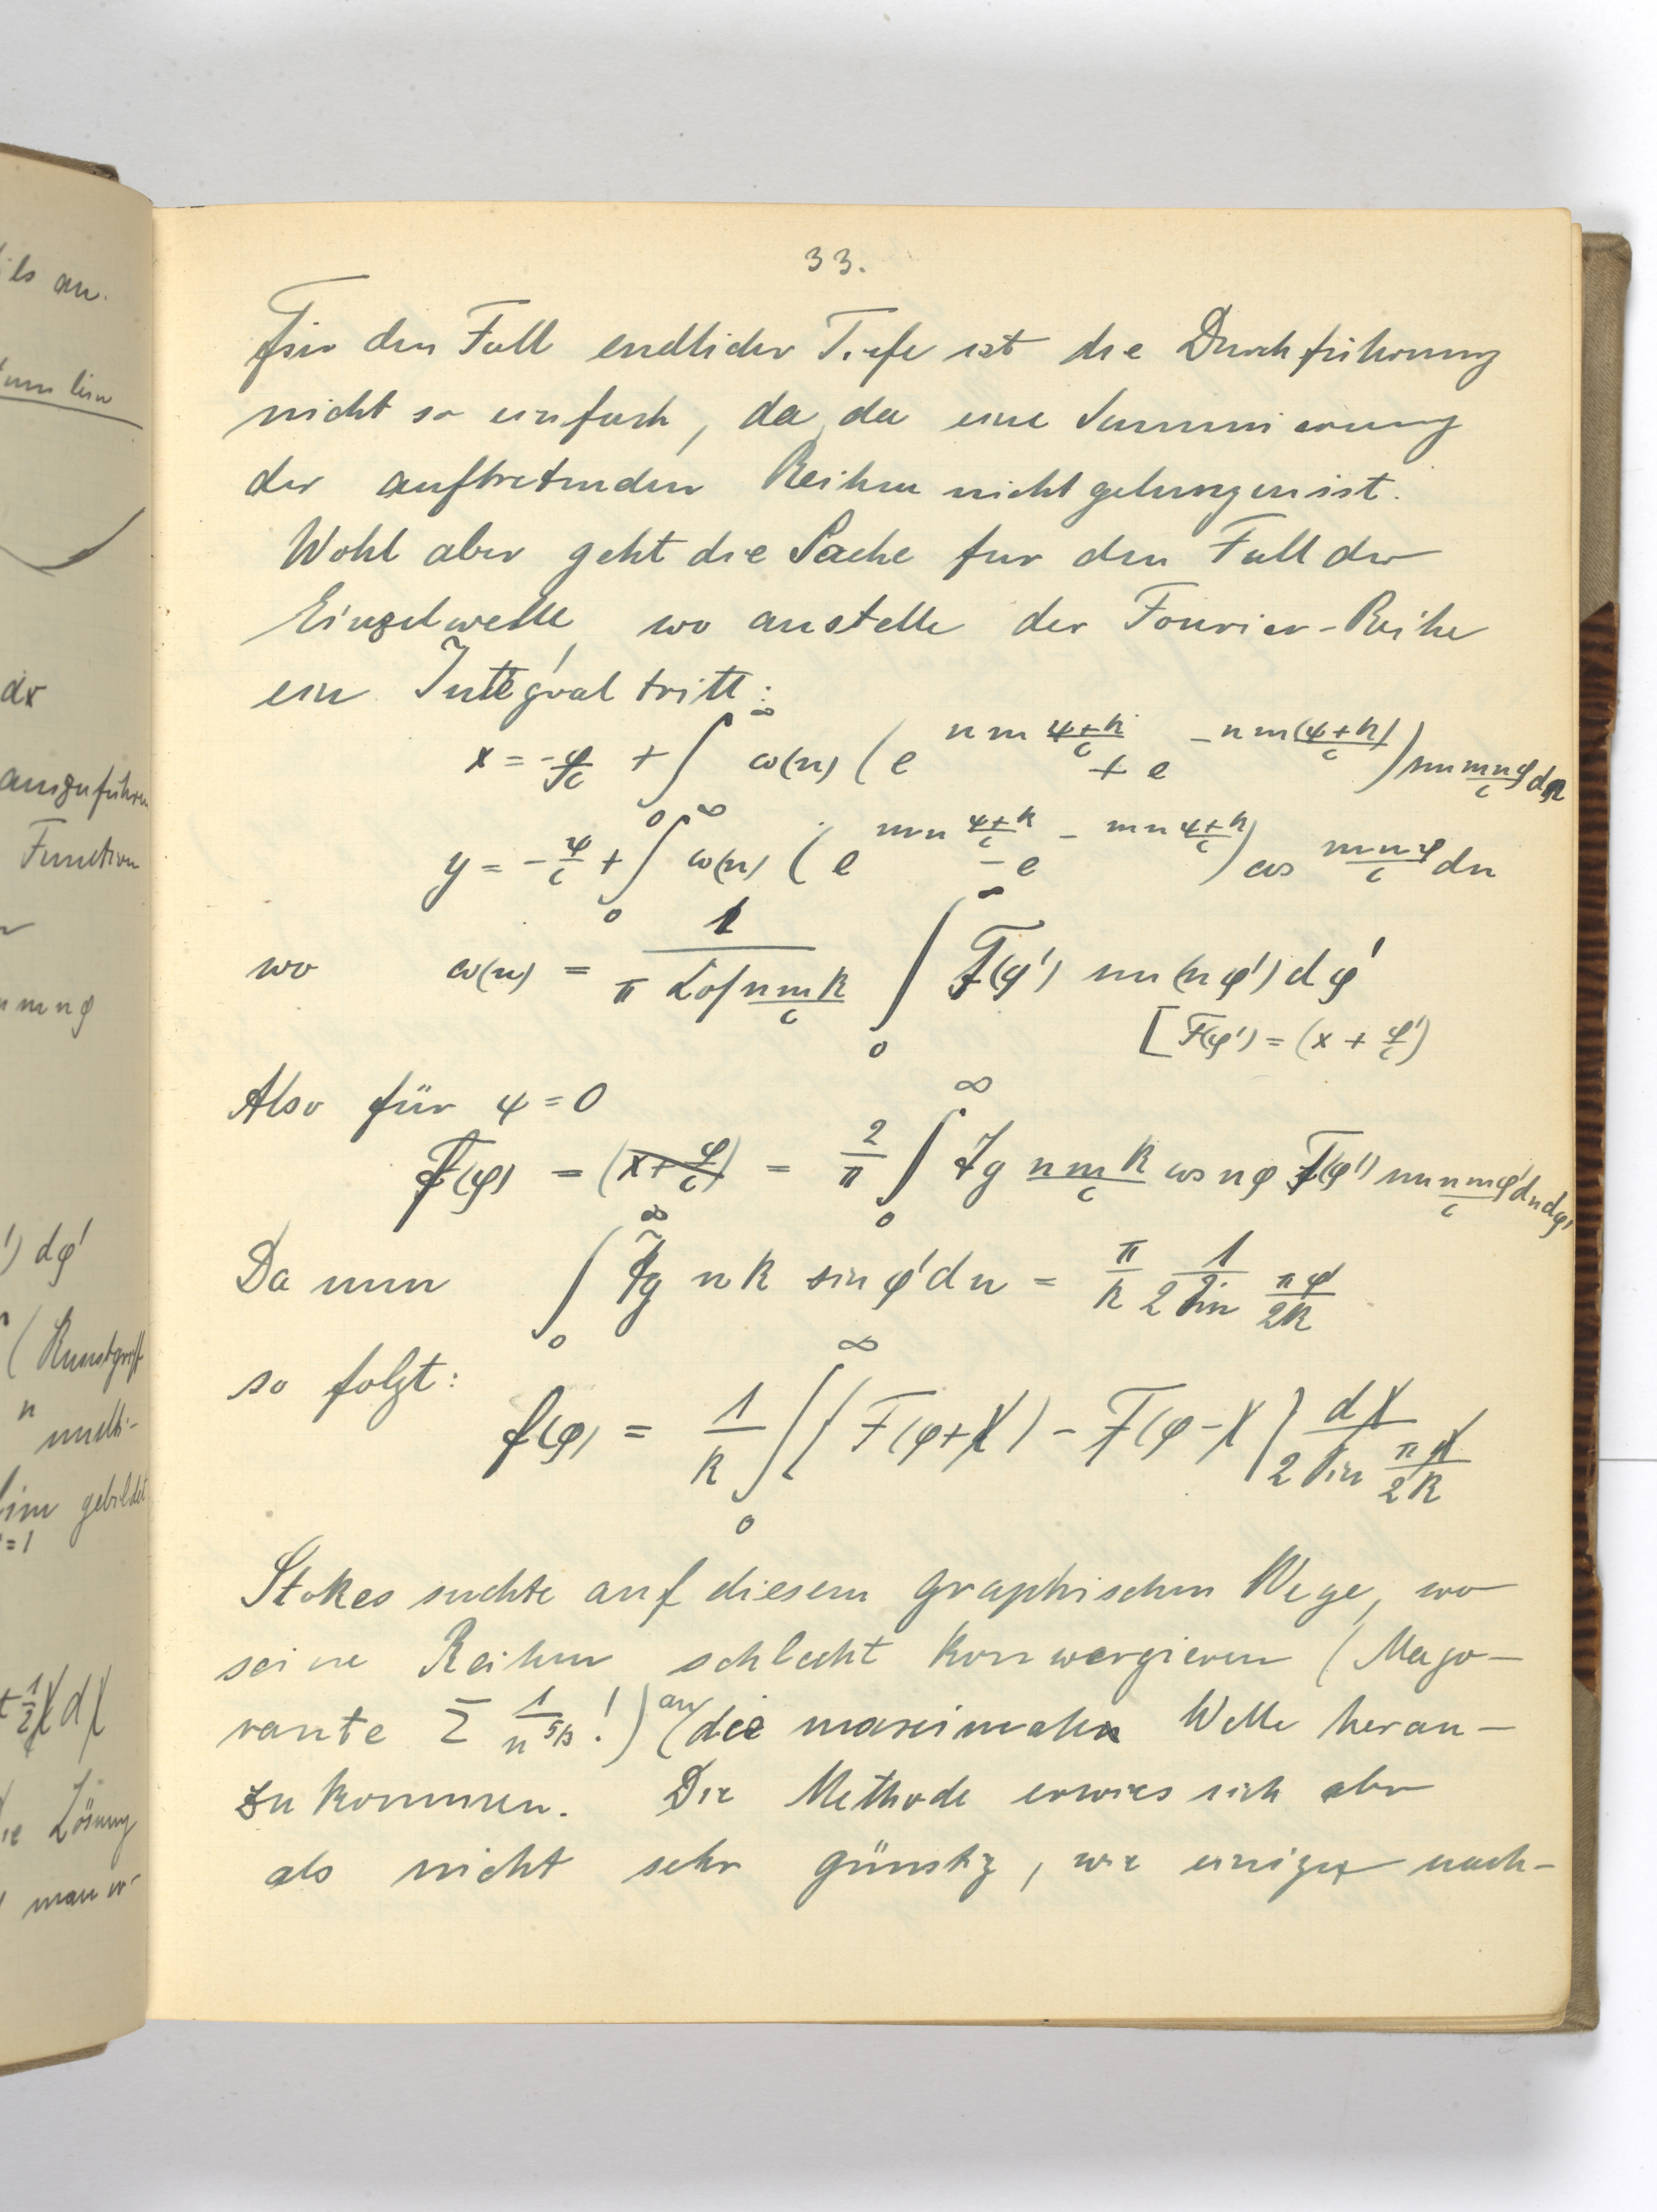 33.
Für den Fall endlicher Tiefe ist die Durchführung
nicht so einfach, da da eine Summierung
der auftretenden Reihen nicht gelungen ist.
Wohl aber geht die Sache fur den Fall der
Einzelwelle, wo anstelle der Fourier-Reihe
ein Integral tritt:
x = -φ/c + ∫₀^∞ ω(n) (e^{nm (ψ+k)/c} + e^{-nm (ψ+k)/c}) sin mnφ/c dn
y = -ψ/c + ∫₀^∞ ω(n) (e^{mn (ψ+k)/c} - e^{-mn (ψ+k)/c}) cos mnφ/c dn
wo ω(n) = 1/(π Cof nmk/c) ∫₀^∞ F(φ') sin (nφ') dφ'
[F(φ') = (x + φ'/c)
Also für ψ=0
f(φ) = (x + φ/c) = 2/π ∫₀^∞ Tg nmk/c cos nφ F(φ') sin nmφ'/c dn dφ'
Da nun ∫₀^∞ Tg nk sin φ' dn = π/k 1/(2 Sin πφ'/2k)
so folgt:
f(φ) = 1/k ∫₀^∞ (F(φ+χ) - F(φ-χ)) dχ/(2 Sin πχ/2k)
Stokes suchte auf diesem graphischen Wege, wo
seine Reihen schlecht konvergieren (Majo-
rante Σ 1/n^{5/3}!) an die maximale Welle heran-
zukommen. Die Methode erwies sich aber
als nicht sehr günstig, wie einige nach-
ils an.
dx
auszuführen
Function
mnφ
') dφ'
(Kunstgriff
n
multi-
lim gebildet
=1
+ ½χ dχ
ie Lösung
man